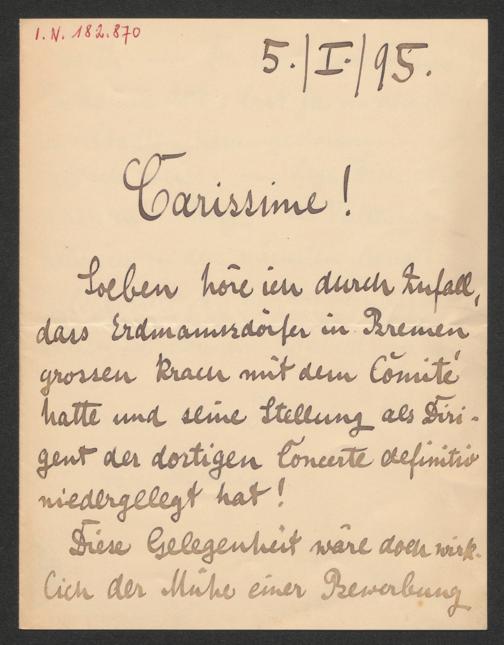 I.N. 182.870
5./I./95.
Carissime!
Soeben höre ich durch Zufall,
dass Erdmannsdörfer in Bremen
grossen Krach mit dem Comité
hatte und seine Stellung als Diri-
gent der dortigen Concerte definitiv
niedergelegt hat!
Diese Gelegenheit wäre doch wirk-
lich der Mühe einer Bewerbung